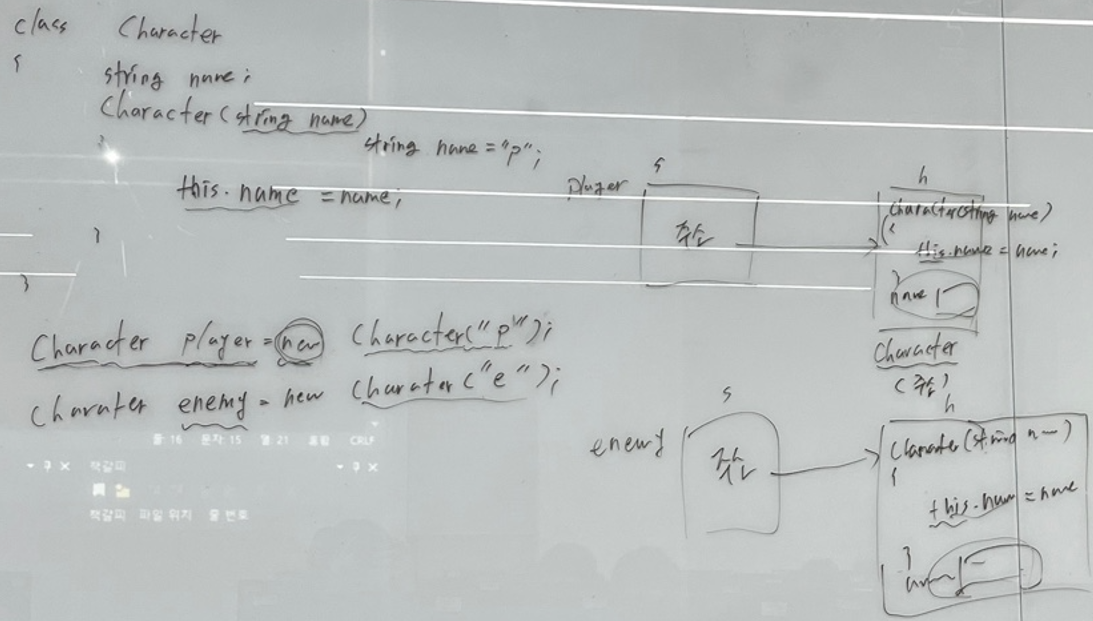 class Character
{
string name;
Character(string name)
{
string name = "p";
this.name = name;
}
}
Character player = new Character("p");
Charater enemy = new Charater("e");
player
s
주소
h
Character(string name)
{
this.name = name;
}
name
Character
(주소)
enemy
s
주소
h
Character(string n
{
this.name = name
}
줄 16 문자 15 열 21 혼합 CRLF
책갈피
책갈피 파일 위치 줄 번호